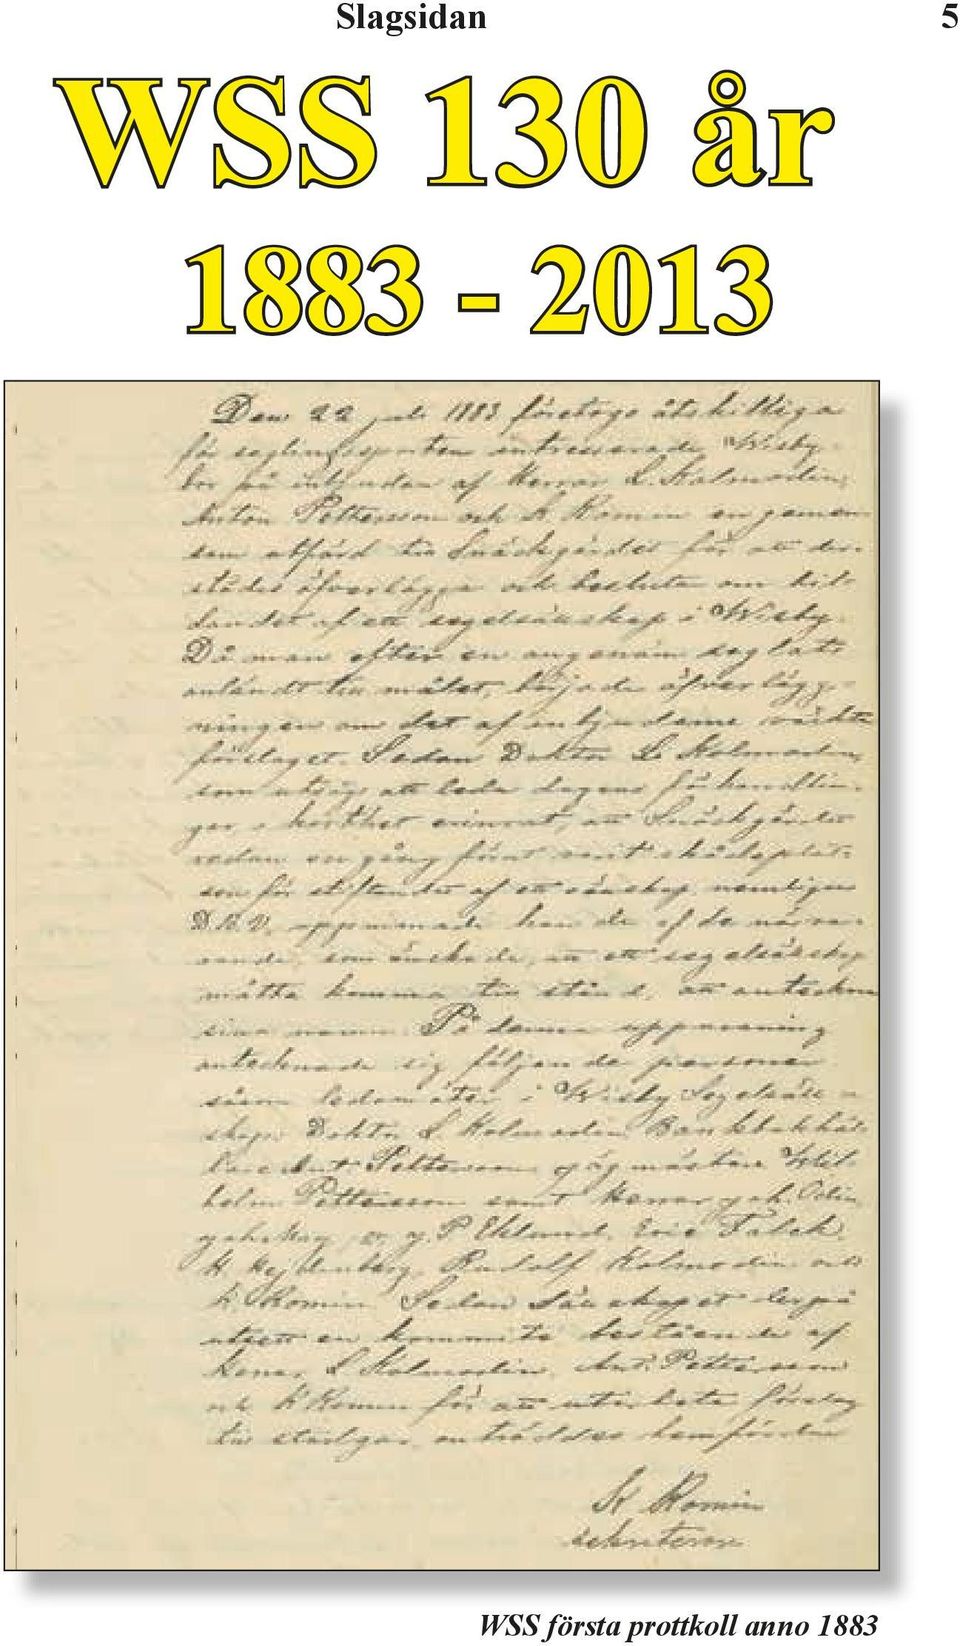 Slagsidan 5
WSS 130 år
1883 - 2013
Den 22 juli 1883 företogo åtskilliga
för seglingssporten intresserade Wisby-
bor på inbjudan af Herrar L. Kolmodin,
Anton Pettersson och K Romin en gemen-
sam utfärd till Snäckgärdet för att der-
städes öfverlägga och besluta om bil-
dandet af ett segelsällskap i Wisby.
Då man efter en angenäm seglats
anländt till målet, började öfverlägg-
ningen om det af inbjudarne väckta
förslaget. Sedan Doktor L Kolmodin,
som utsågs att leda dagens förhandlin-
gar i korthet erinrat, att Snäckgärdet
redan en gång förut varit skådeplat-
sen för stiftandet af ett sällskap nemligen
D.B.V, uppmanade han de af de närva-
rande, som önskade, att ett segelsällskap
måtte komma till stånd, att anteckna
sina namn. På denna uppmaning
antecknade sig följande personer
såsom ledamöter i Wisby Segelsäll-
skap: Doktor L Kolmodin, Bankbokhål-
lare Ant. Pettersson, jägmästare Wil-
helm Pettersson samt Herrar Jak. Odin,
P Eklund, Eric Falck,
H. Hejdenberg, Rudolf Kolmodin och
K. Romin. Sedan Sällskapet derpå
utsett en kommité bestående af
Herrar L Kolmodin, Ant. Pettersson
och K Romin för att utarbeta förslag
till stadgar, anträddes hemfärden
K Romin
sekreterare
WSS första prottkoll anno 1883